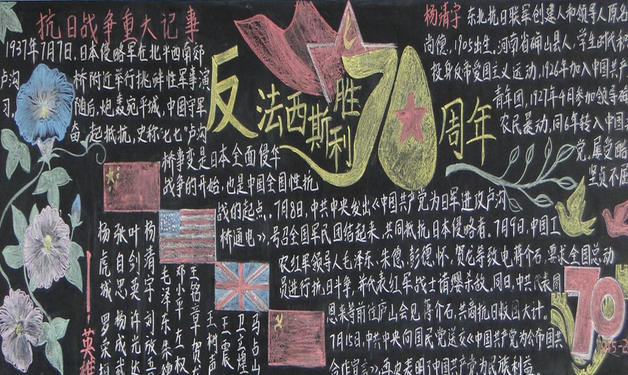 抗日战争重大记事
1937年7月7日,日本侵略军在北平西南部
卢沟桥附近举行挑衅性军事演
习,随后,炮轰宛平城,中国守军
奋起抵抗,史称“七七”卢沟
桥事变是日本全面侵华
战争的开始,也是中国全国性抗
战的起点,7月8日,中共中央发出《中国共产党为日军进攻卢沟
桥通电》,号召全国军民团结起来,共同抵抗日本侵略者,7月9日,中国工
农红军领导人毛泽东、朱德、彭德怀、贺龙等致电蒋介石,要求全国总动
员进行抗日斗争,并代表红军战士请缨杀敌,同日,中共代表周
恩来等前往庐山会见蒋介石,共商抗日救国大计。
7月15日,中共中央向国民党送交《中国共产党为公布国共
合作宣言》,再次表明了中国共产党为民族利益
反法西斯胜利70周年
杨靖宇 东北抗日联军创建人和领导人原名
尚德,1905出生,河南省确山县人,学生时代积
投身反帝爱国主义运动,1926年加入中国共产
青年团,1927年4月参加领导确
农民暴动,同6年转入中国共
党,屡受酷
坚贞不屈
英雄
杨虎城
张自忠
叶剑英
杨靖宇
毛泽东
邓小平
左权
王铭章
贺龙
王震
卫立煌
马占山
罗荣桓
杨成武
许光达
70